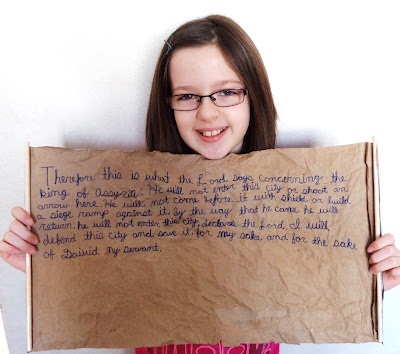 Therefore this is what the Lord says concerning the
king of Assyria. He will not enter this city or shoot an
arrow here. He will not come before it with shield or build
a siege ramp against it. By the way that he came he will
return; he will not enter this city, declares the Lord. I will
defend this city and save it, for my sake and for the sake
of David my servant.